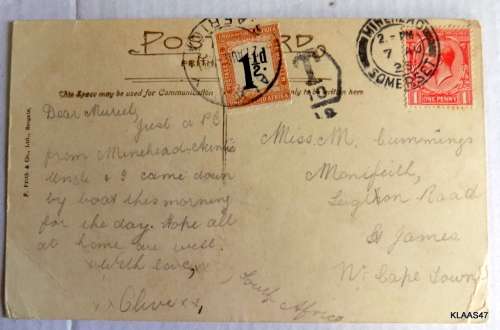 POST CARD
This Space may be used for Communication
only to be written here
F. Frith & Co., Ltd., Reigate.
Dear Muriel,
Just a P.C.
from Minehead. Auntie
Uncle & I came down
by boat this morning
for the day. Hope all
at home are well.
With love,
xx Olive xx
Miss. M. Cummings
Leighton Road
St James
Nr Cape Town
South Africa
MINEHEAD
2 - PM
7
SOMERSET
ONE PENNY
1½ᴰ
T
KLAAS47